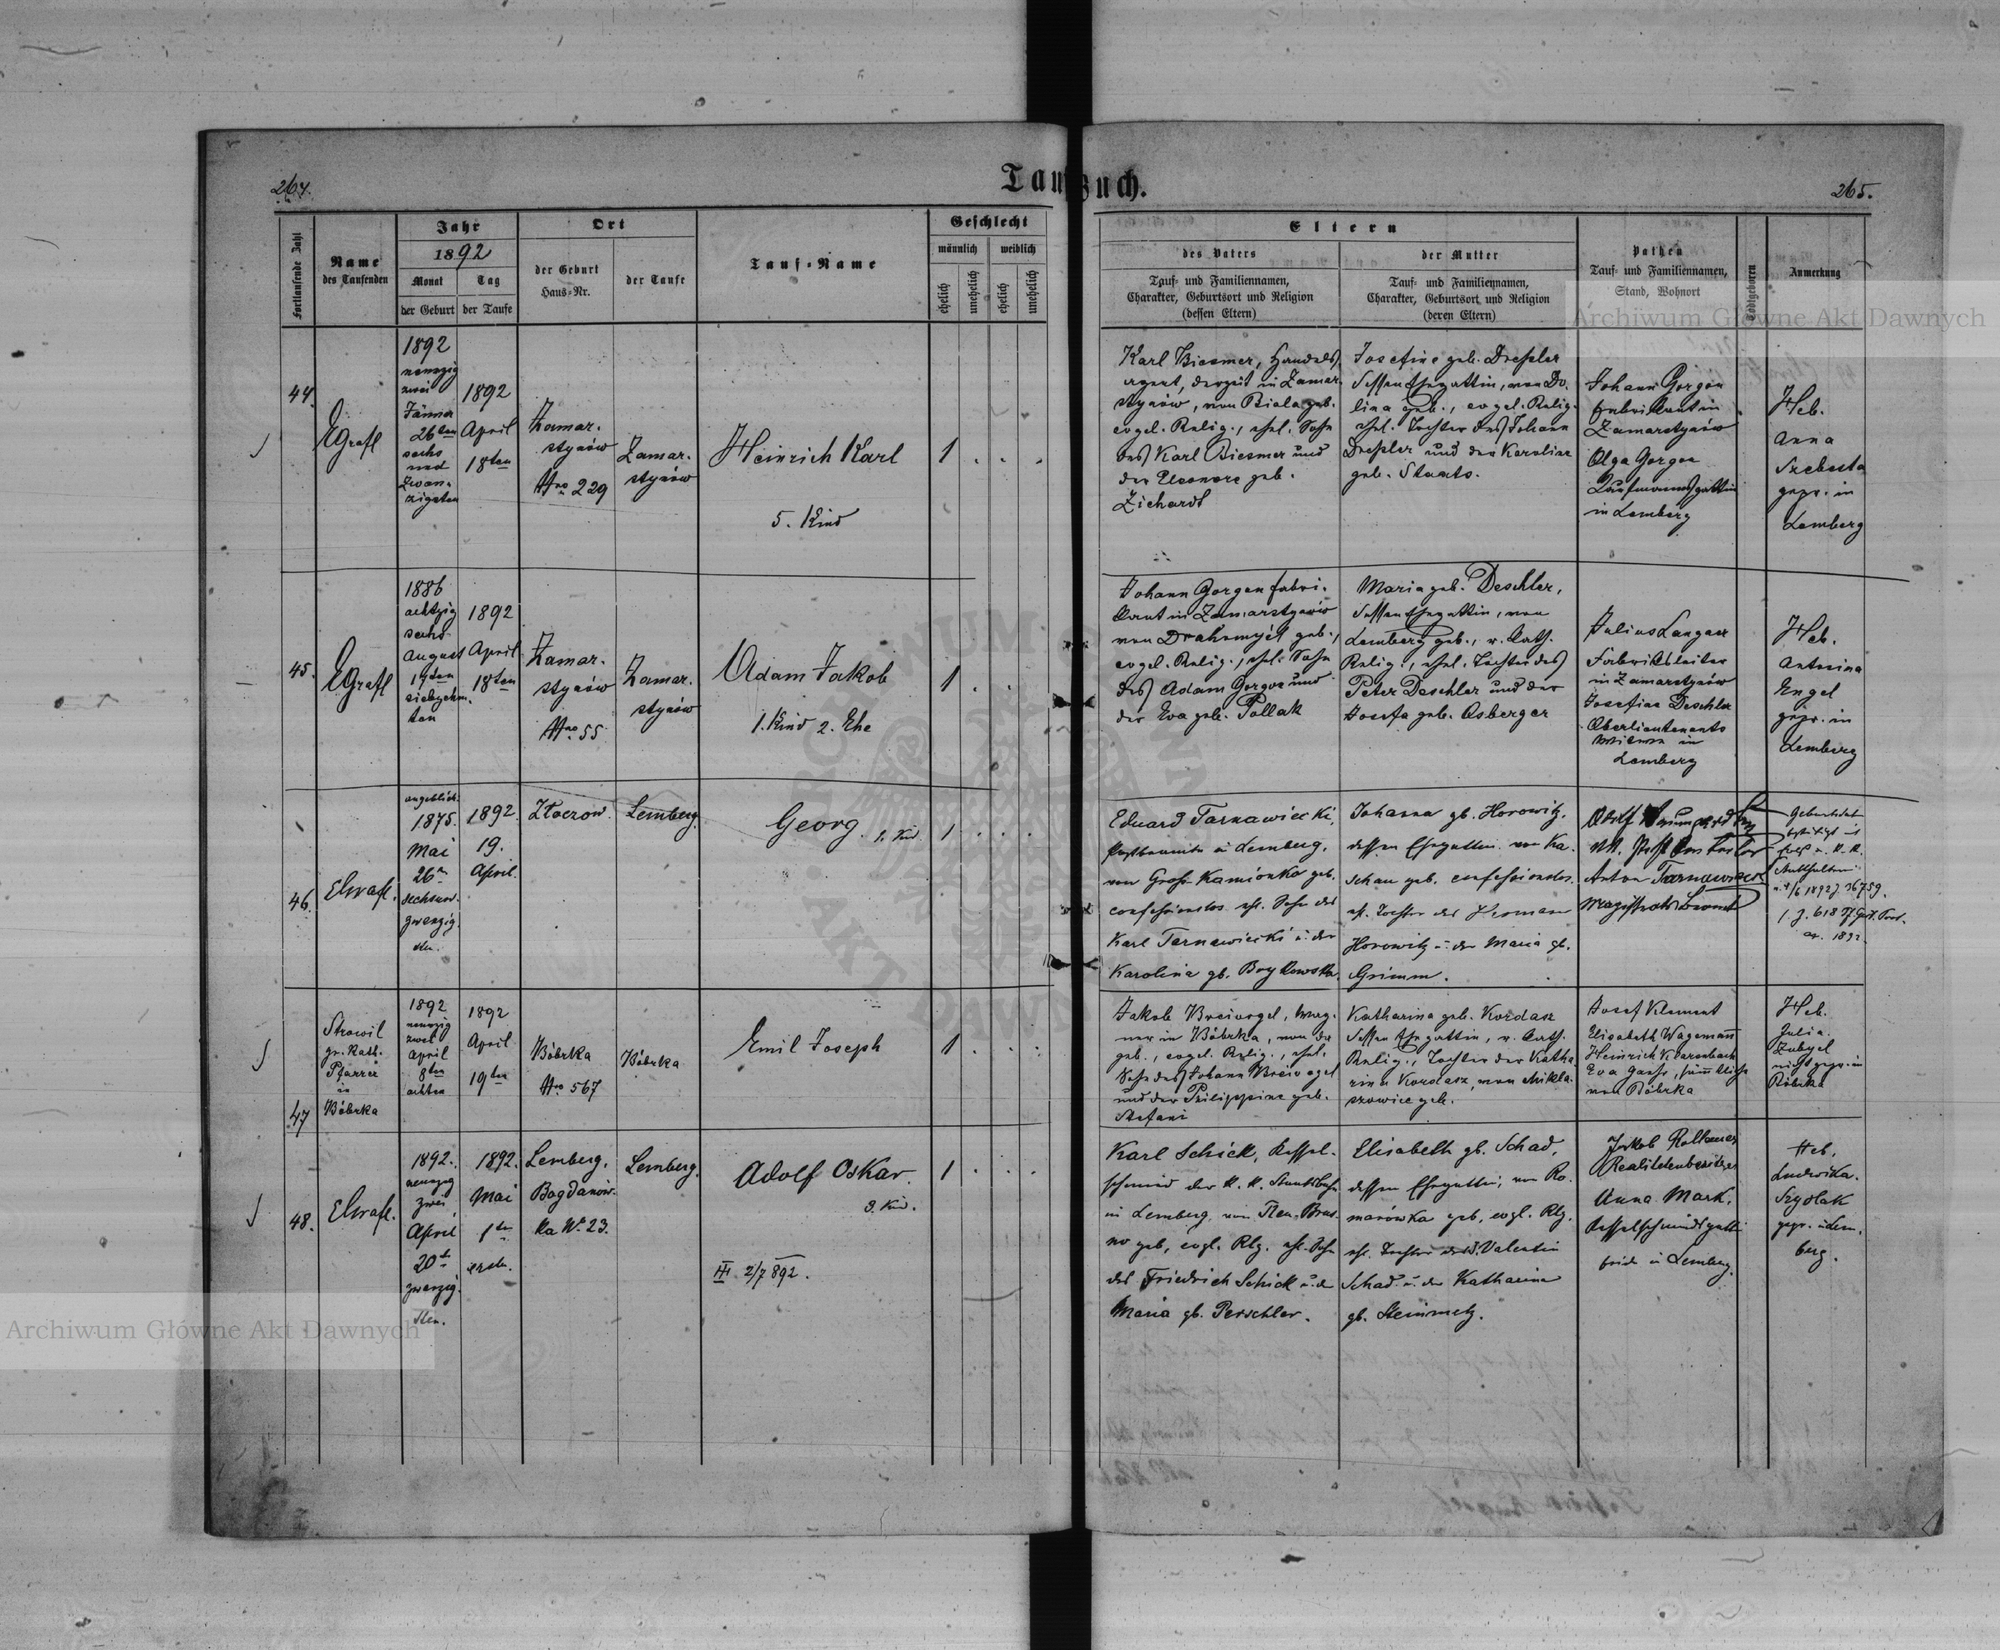 264.
Taufbuch.
265.
Fortlaufende Zahl
Name
des Taufenden
Jahr
1892
Monat
der Geburt
Tag
der Taufe
Ort
der Geburt
Haus-Nr.
der Taufe
Tauf-Name
Geschlecht
männlich
weiblich
ehelich
unehelich
ehelich
unehelich
Eltern
des Vaters
Tauf- und Familiennamen,
Charakter, Geburtsort und Religion
(dessen Eltern)
der Mutter
Tauf- und Familiennamen,
Charakter, Geburtsort und Religion
(deren Eltern)
Pathen
Tauf- und Familiennamen,
Stand, Wohnort
Todtgeboren
Anmerkung
Archiwum Główne Akt Dawnych
44.
1892
neunzig
zwei
Jänner
26ten
sechs
und
zwan-
zigsten
1892
April
18ten
Zamar-
stynów
Nro 229
Zamar-
stynów
Heinrich Karl
5. Kind
1
Karl Biesmer, Handels-
agent, derzeit in Zamar-
stynów, von Biala geb.
evgel. Relig., ehel. Sohn
des Karl Biesmer und
der Eleonore geb.
Zichardt
Josefine geb. Dreßler
dessen Ehegattin, von Do-
lina geb., evgel. Relig.
ehel. Tochter des Johann
Dreßler und der Karoline
geb. Staats.
Johann Gorgon
Fabrikant in
Zamarstynów
Olga Gorgon
Kaufmannsgattin
in Lemberg
Heb.
Anna
gepr. in
Lemberg
45.
1886
achtzig
sechs
August
17ten
siebzehn-
ten
1892
April
18ten
Zamar-
stynów
Nro 55
Zamar-
stynów
Adam Jakob
1. Kind 2. Ehe
1
Johann Gorgon Fabri-
kant in Zamarstynów
von geb.,
evgel. Relig., ehel. Sohn
des Adam Gorgon und
der Eva geb. Pollak
Maria geb. Deschler,
dessen Ehegattin, von
Lemberg geb., r. kath.
Relig., ehel. Tochter des
Peter Deschler und der
Josefa geb. Asberger
Julius Langner
Fabriksleiter
in Zamarstynów
Josefine Deschler
Oberlieutenants
Witwe in
Lemberg
Heb.
Antonina
Engel
gepr. in
Lemberg
46.
angeblich
1875.
Mai
26n
sechsund-
zwanzig-
sten.
1892.
19.
April.
Złoczow.
Lemberg.
Georg. 1. Kind
1
Eduard Tarnawiecki,
Postbeamte in Lemberg,
von Groß Kamionka geb.
confessionslos, ehl. Sohn des
Karl Tarnawiecki u. der
Karolina gb. Boykowska.
Johanna gb. Horowitz,
dessen Ehegattin, von Ka-
schau geb. confessionslos.
eh. Tochter des Herman
Horowitz u. der Maria gb.
Grimm.
Adolf
Anton Tarnawiecki
47
Strowil
gr. kath.
Pfarrer
in
Bóbrka
1892
neunzig
zwei
April
8ten
achten
1892
April
19ten
Bóbrka
Nro 567
Bóbrka
Emil Joseph
1
Jakob Breivogel, Wag-
ner in Bóbrka, von da
geb., evgel. Relig., ehel.
Sohn des Johann Breivogel
und der Philippine geb.
Stefani
Katharina geb. Kordasz
dessen Ehegattin, r. kath.
Relig., Tochter der Katha-
rina Kordasz, von Mikla-
szowice geb.
Josef Klement
Elisabeth Wagemann
Heinrich Klarenbach
Eva sämmtliche
von Bóbrka
Heb.
Julia
nicht gepr. in
Bóbrka
48.
1892.
neunzig
zwei,
April
20t
zwanzig-
sten.
1892.
Mai
1ten
ersten.
Lemberg,
Bogdanów-
ka No 23.
Lemberg.
Adolf Oskar.
3. Kind.
III 2/7 892.
1
Karl Schick, Kessel-
schmied der k. k. Staatsbahn
in Lemberg, von
geb, evgl. Rlg. ehl. Sohn
des Friedrich Schick u. der
Maria gb. Perschler.
Elisabeth gb. Schad,
dessen Ehegattin, von Ro-
manówka geb, evgl. Rlg.
ehl. Tochter des Valentin
Schad u. der Katharina
gb. Steinmetz.
Jakob
Realitätenbesitzer
Anna Mark,
Kesselschmidsgattin
beide in Lemberg.
Heb.
Ludwika
Szydlak
gepr. in Lem-
berg.
Archiwum Główne Akt Dawnych